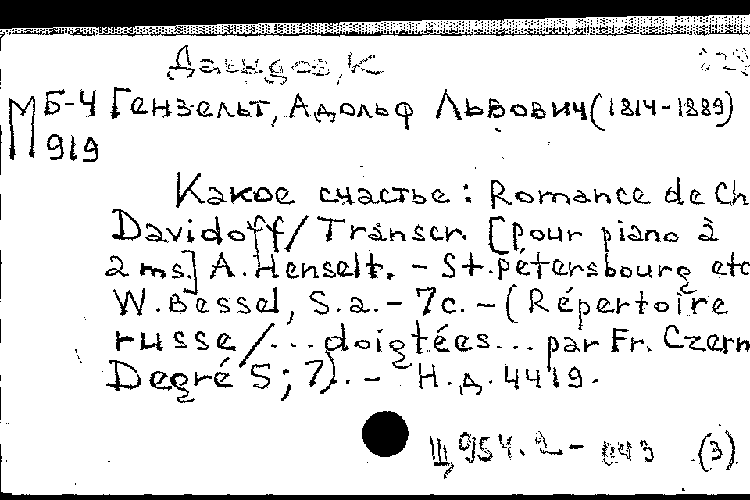 Давыдов, К
М Б-4 Гензельт, Адольф Львович (1814-1889)
919
Какое счастье : Romance de Ch
Davidoff / Transcr. [pour piano à
2 ms.] A. Henselt. - St. pétersbourg etc
W. Bessel, S. a. - 7 c. - (Répertoire
russe / ... doigtées ... par Fr. Czern
Degré 5 ; 7). - Н. д. 4419.
Щ 954.2- (3)